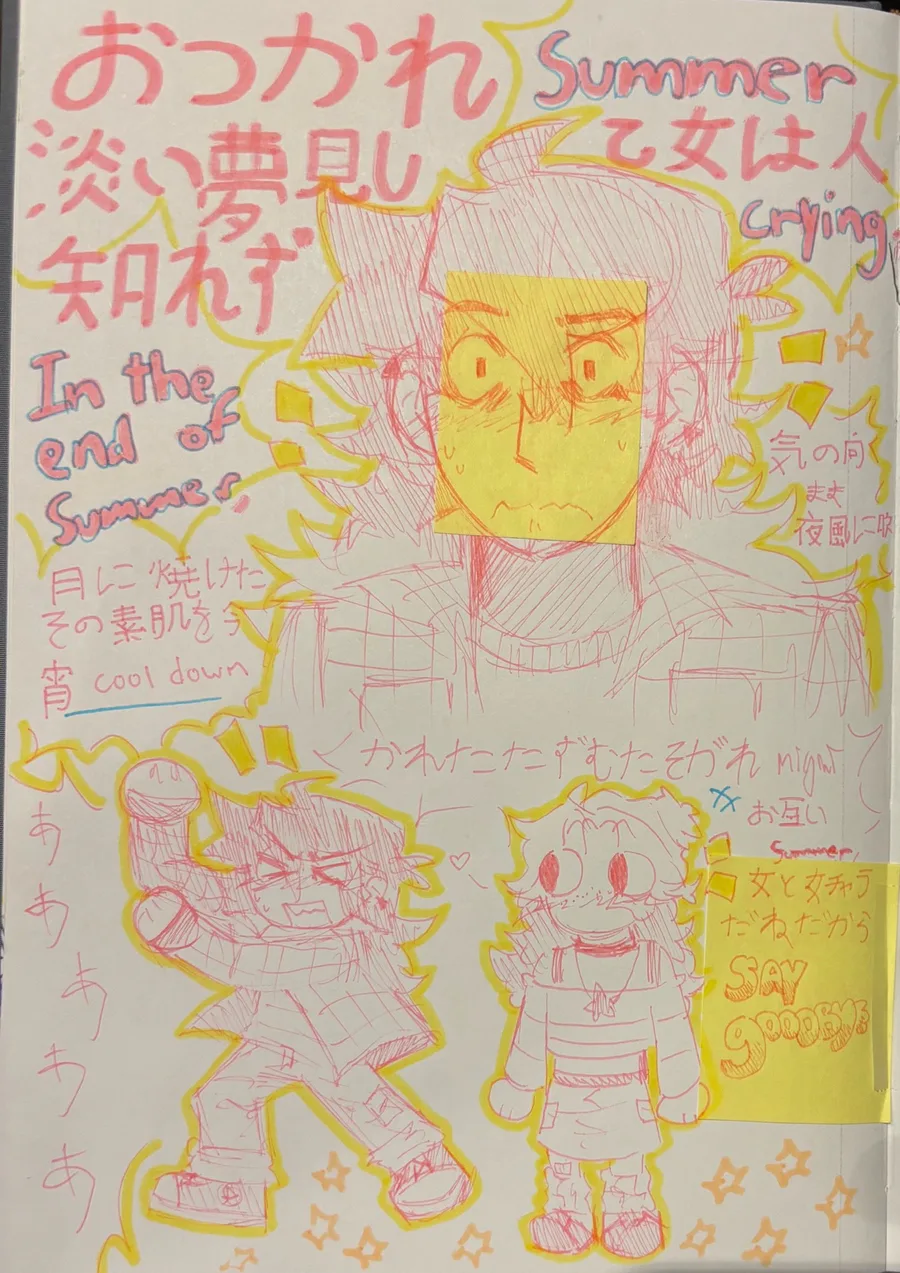 おつかれ
Summer
淡い夢見し
乙女は人
知れず
crying
In the
end of
Summer
気の向
まま
夜風に吹
月に焼けた
その素肌を今
宵 cool down
かれたこたずむたそがれ night
お互い
Summer,
女と女チャラ
だねだから
SAY
goodbye
あ
あ
あ
あ
あ